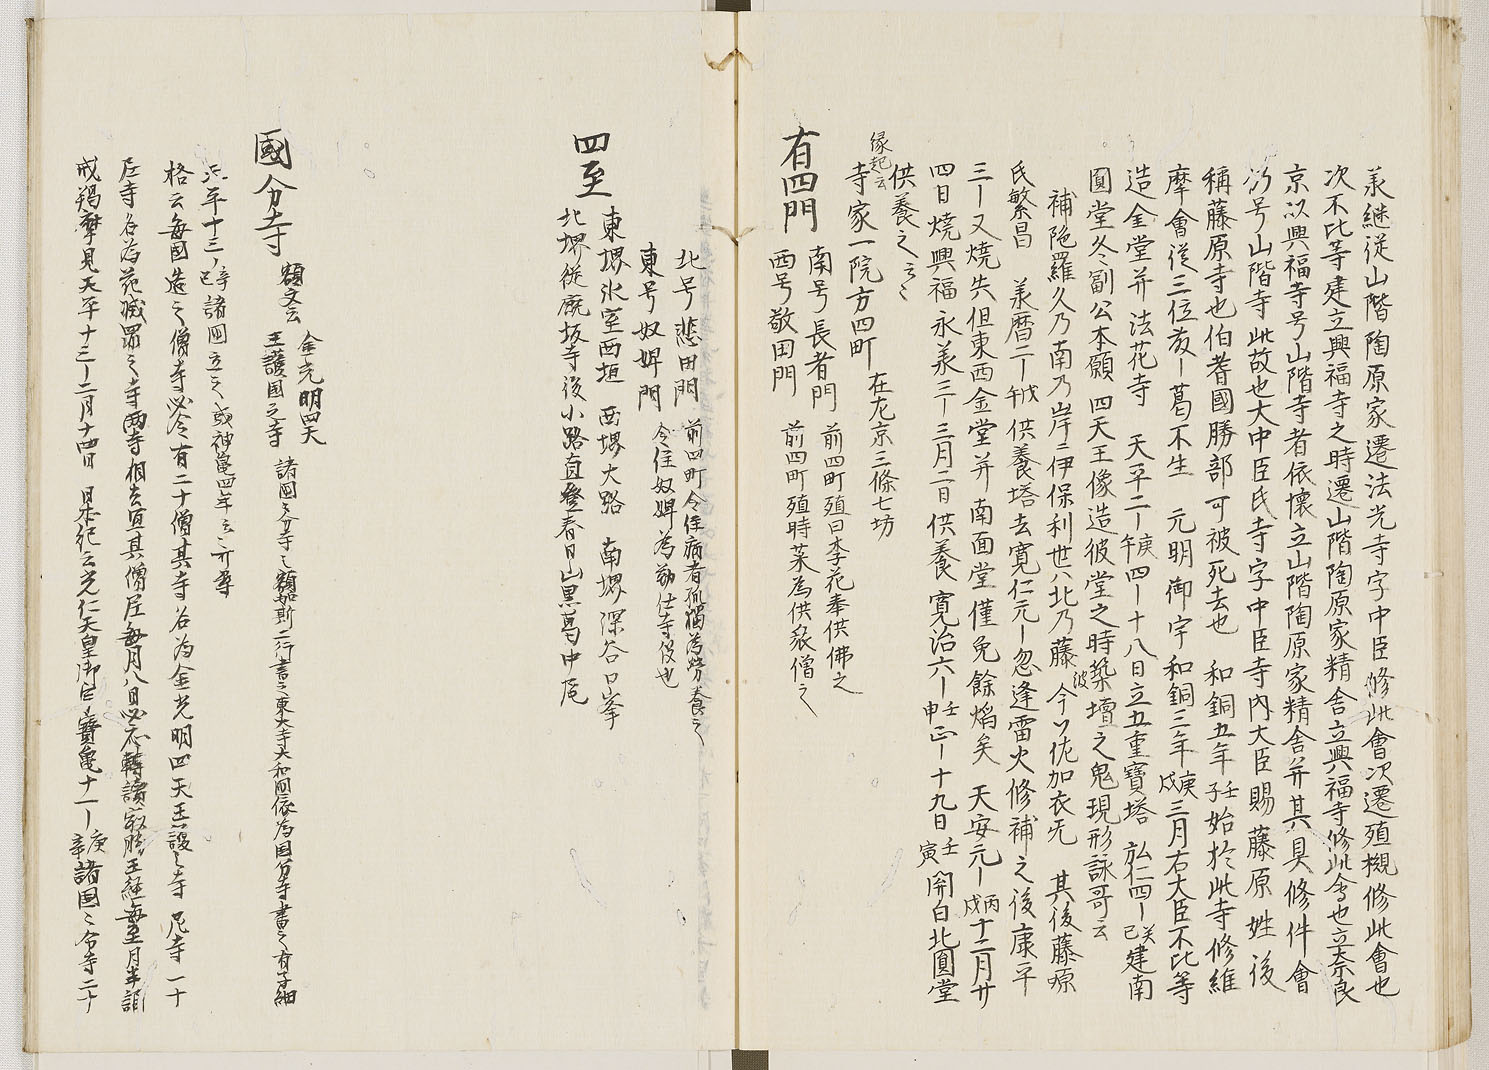 兼継従山階陶原家遷法光寺字中臣修此會次遷殖槻修此會也
次不比等建立興福寺之時遷山階陶原家精舎立興福寺修此會也立奈良
京以興福寺号山階寺者依懐立山階陶原家精舎并其具修件會
仍号山階寺此故也大中臣氏寺字中臣寺内大臣賜藤原姓後
稱藤原寺也伯耆國勝部可被死去也 和銅五年壬子始於此寺修維
摩會従三位安ー葛不生 元明御宇和銅三年庚戌三月右大臣不比等
造金堂并法花寺 天平二ー庚午四ー十八日立五重寶塔 弘仁四ー癸巳建南
圓堂冬副公本願四天王像造彼堂之時築壇之鬼現形詠哥云
補陁羅久乃南乃岸ニ伊保利世ハ北乃藤波今ソ佐加衣无 其後藤原
氏繁昌 兼暦二ー戊午供養塔去寛仁元ー忽逢雷火修補之後康平
三ー又焼失但東西金堂并南面堂僅免餘焔矣 天安元ー丙戌十二月廿
四日焼興福永兼三ー三月二日供養寛治六ー壬申正ー十九日壬寅開白北圓堂
供養之云々
縁起云
寺家一院方四町 在左京三條七坊
有四門
南号長者門 前四町殖曰李花奉供佛之
西号敬田門 前四町殖時菜為供衆僧之
北号悲田門 前四町令住病者孤獨為労養之
東号奴婢門 令住奴婢為勤仕寺役也
四至
東堺氷室西垣 西堺大路 南堺深谷口峯
北堺従廃坂寺後小路直登春日山黒葛中尾
國分寺
額文云 金光明四天
王護国之寺
諸國々分寺之額如斯二行書之東大寺大和國依為国分寺書之有子細
天平十三ノ辛巳諸國立之或神亀四年云々可尋
格云毎国造之僧寺必令有二十僧其寺名為金光明四天王護之寺尼寺一十
尼寺名為花滅罪之寺両寺相去宜其僧尼毎月八日必應轉讀最勝王経毎至月半誦
戒羯摩見天平十三ー二月十四日 日本紀云光仁天皇御宇寶亀十一ー庚辛諸國々分寺二十